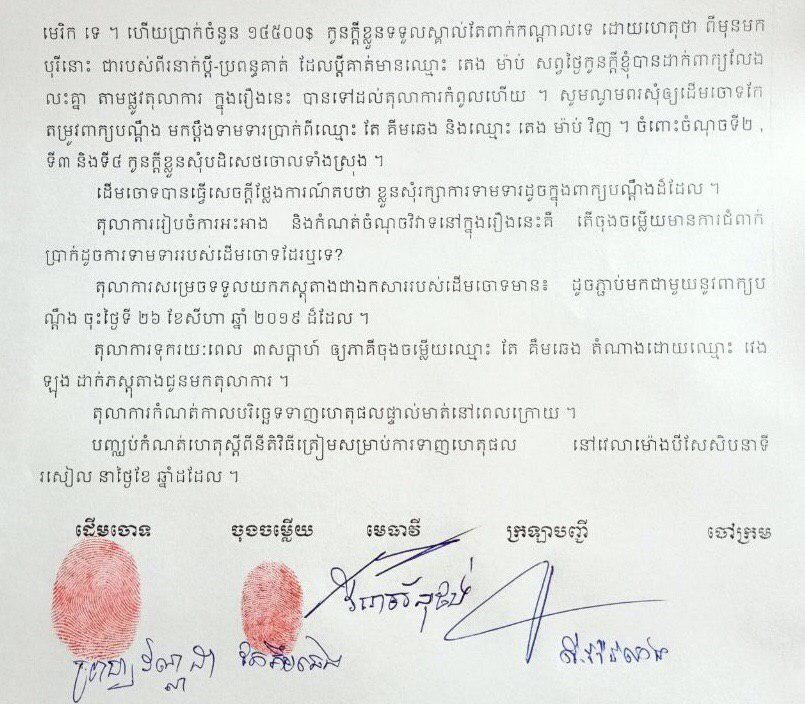 មេរិក ទេ ។ ហើយប្រាក់ចំនួន ១៤៥០០$ កូនក្ដីខ្លួនទទួលស្គាល់តែពាក់កណ្ដាលទេ ដោយហេតុថា ពីមុនមក
បុរីនោះ ជារបស់ពីរនាក់ប្ដី-ប្រពន្ធគាត់ ដែលប្ដីគាត់មានឈ្មោះ តេង ម៉ាប់ សព្វថ្ងៃកូនក្ដីខ្ញុំបានដាក់ពាក្យលែង
លះគ្នា តាមផ្លូវតុលាការ ក្នុងរឿងនេះ បានទៅដល់តុលាការកំពូលហើយ ។ សូមណូមពរសុំឲ្យដើមចោទកែ
តម្រូវពាក្យបណ្ដឹង មកប្ដឹងទាមទារប្រាក់ពីឈ្មោះ តែ គីមឆេង និងឈ្មោះ តេង ម៉ាប់ វិញ ។ ចំពោះចំណុចទី២ ,
ទី៣ និងទី៤ កូនក្ដីខ្លួនសុំបដិសេធចោលទាំងស្រុង ។
ដើមចោទបានធ្វើសេចក្ដីថ្លែងការណ៍តបថា ខ្លួនសុំរក្សាការទាមទារដូចក្នុងពាក្យបណ្ដឹងដ៏ដែល ។
តុលាការរៀបចំការអះអាង និងកំណត់ចំណុចវិវាទនៅក្នុងរឿងនេះគឺ តើចុងចម្លើយមានការជំពាក់
ប្រាក់ដូចការទាមទាររបស់ដើមចោទដែរឬទេ?
តុលាការសម្រេចទទួលយកភស្តុតាងជាឯកសាររបស់ដើមចោទមាន៖ ដូចភ្ជាប់មកជាមួយនូវពាក្យប
ណ្ដឹង ចុះថ្ងៃទី ២៦ ខែសីហា ឆ្នាំ ២០១៩ ដ៏ដែល ។
តុលាការទុករយ:ពេល ៣សប្ដាហ៍ ឲ្យភាគីចុងចម្លើយឈ្មោះ តែ គឹមឆេង តំណាងដោយឈ្មោះ វេង
ឡុង ដាក់ភស្តុតាងជូនមកតុលាការ ។
តុលាការកំណត់កាលបរិច្ឆេទទាញហេតុផលផ្ទាល់មាត់នៅពេលក្រោយ ។
បញ្ឈប់កំណត់ហេតុស្ដីពីនីតិវិធីត្រៀមសម្រាប់ការទាញហេតុផល នៅវេលាម៉ោងបីសែសិបនាទី
រសៀល នាថ្ងៃខែ ឆ្នាំដដែល ។
ដើមចោទ ចុងចម្លើយ មេធាវី ក្រឡាបញ្ជី ចៅក្រម